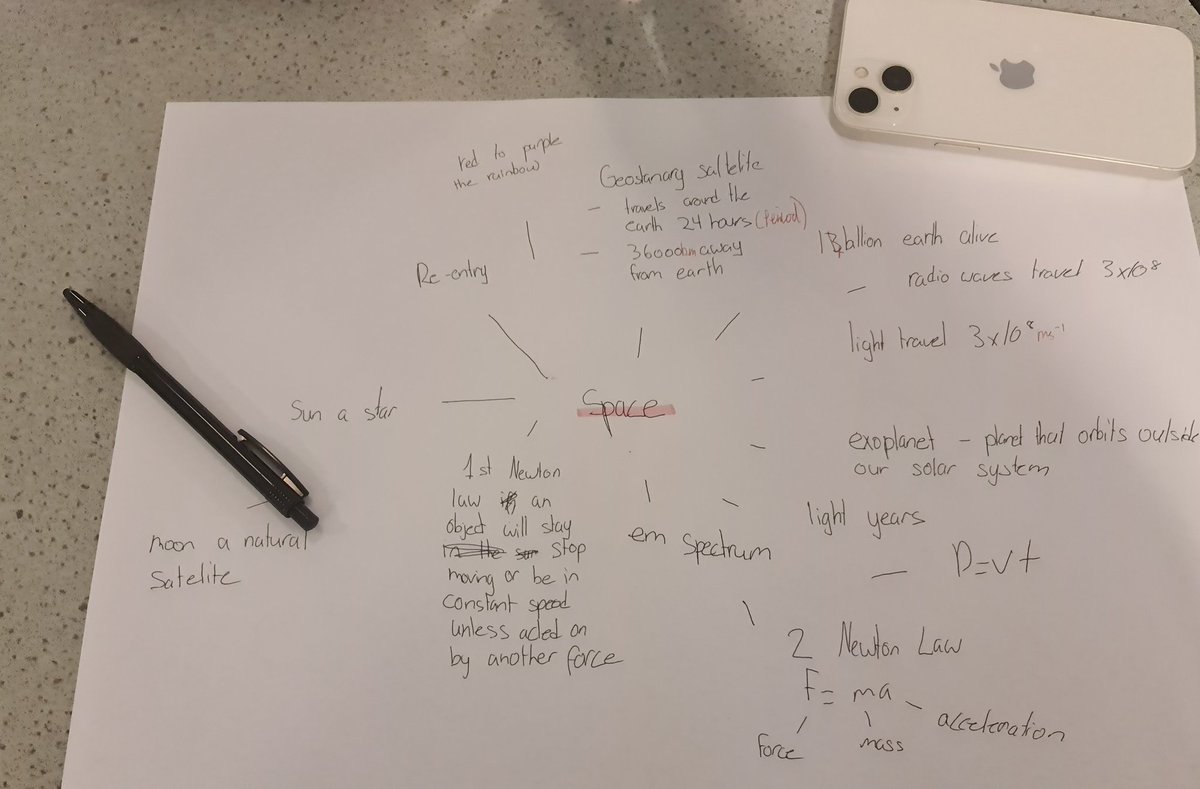 red to purple
the rainbow
Geostanary saltelite
- travels around the
earth 24 hours (Period)
- 36000km away
from earth
Re-entry
13 billion earth alive
- radio waves travel 3x10⁸
light travel 3x10⁸ ms⁻¹
Sun a star
Space
exoplanet - planet that orbits outside
our solar system
1st Newton
law an
object will stay
stop
moving or be in
constant speed
unless acted on
by another force
moon a natural
satelite
em spectrum
light years
- D=vt
2 Newton Law
F = ma
force
mass
acceleration